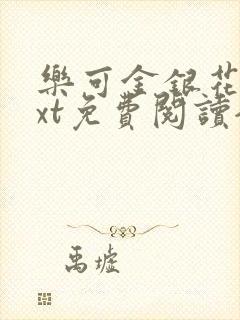 樂可金銀花
xt免費閱讀
禹墟